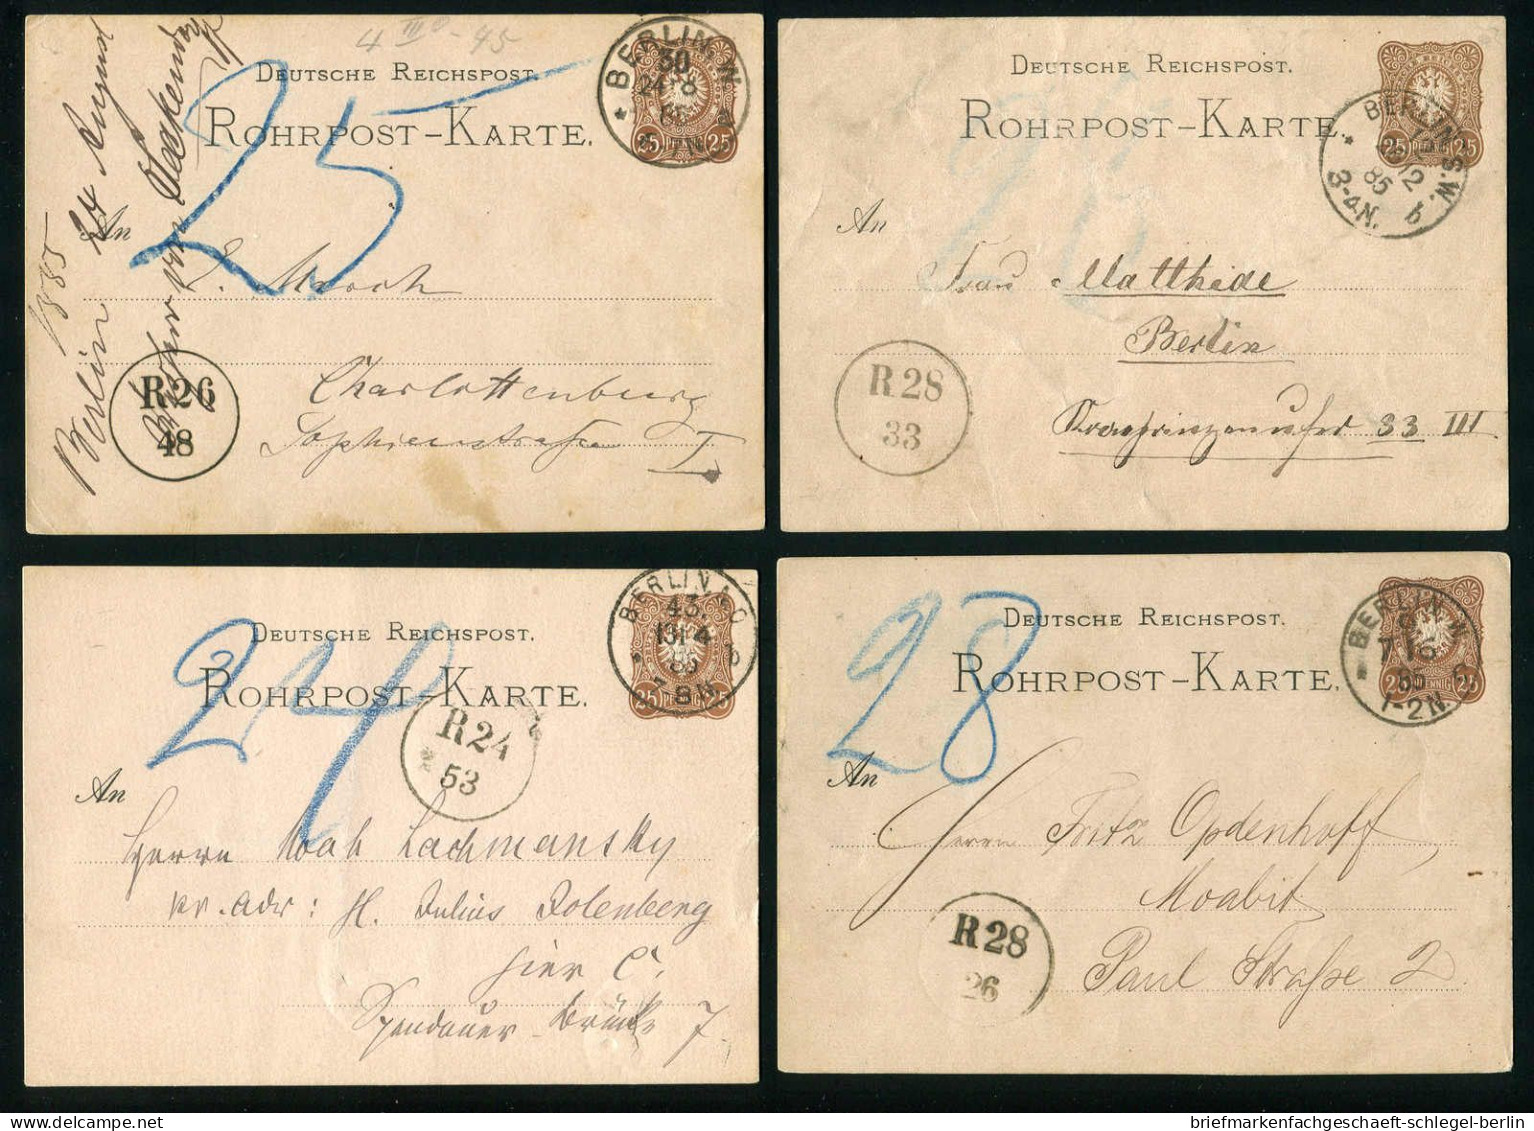 4 III - 45
DEUTSCHE REICHSPOST.
ROHRPOST-KARTE.
25
BERLIN W
30
24 8
85
25 PFENNIG 25
1885
Berlin 24 August
An
Charlottenburg
Sophienstrasse I
R26
48
DEUTSCHE REICHSPOST.
ROHRPOST-KARTE.
28
BERLIN S.W.
12
85
3-4N. b
25 PFENNIG 25
An
Frau Matthide
Berlin
Kronprinzenufer 33 III
R 28
33
DEUTSCHE REICHSPOST.
ROHRPOST-KARTE.
24
BERLIN N.O
43
13 4
85
7-8N.
25 PFENNIG 25
R24
53
An
Herrn Noah Lachmansky
pr. Adr: H. Julius Rotenberg
hier C.
Spandauer Brücke 7
DEUTSCHE REICHSPOST.
ROHRPOST-KARTE.
28
BERLIN W
1-2N.
25 PFENNIG 25
An
Herrn Fritz Opdenhoff
Moabit
Paul Straße 2
R 28
26
briefmarkenfachgeschaeft-schlegel-berlin